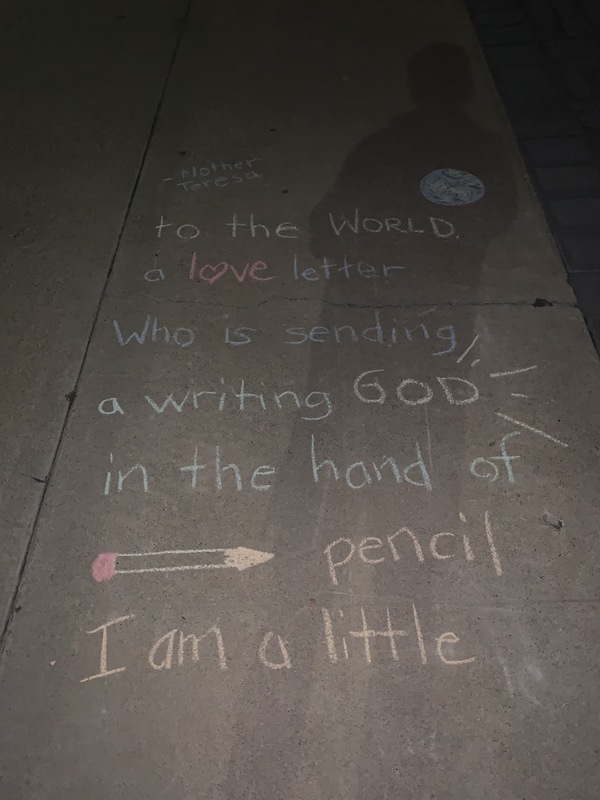 I am a little
pencil
in the hand of
a writing GOD
Who is sending
a love letter
to the WORLD.
- Mother
Teresa